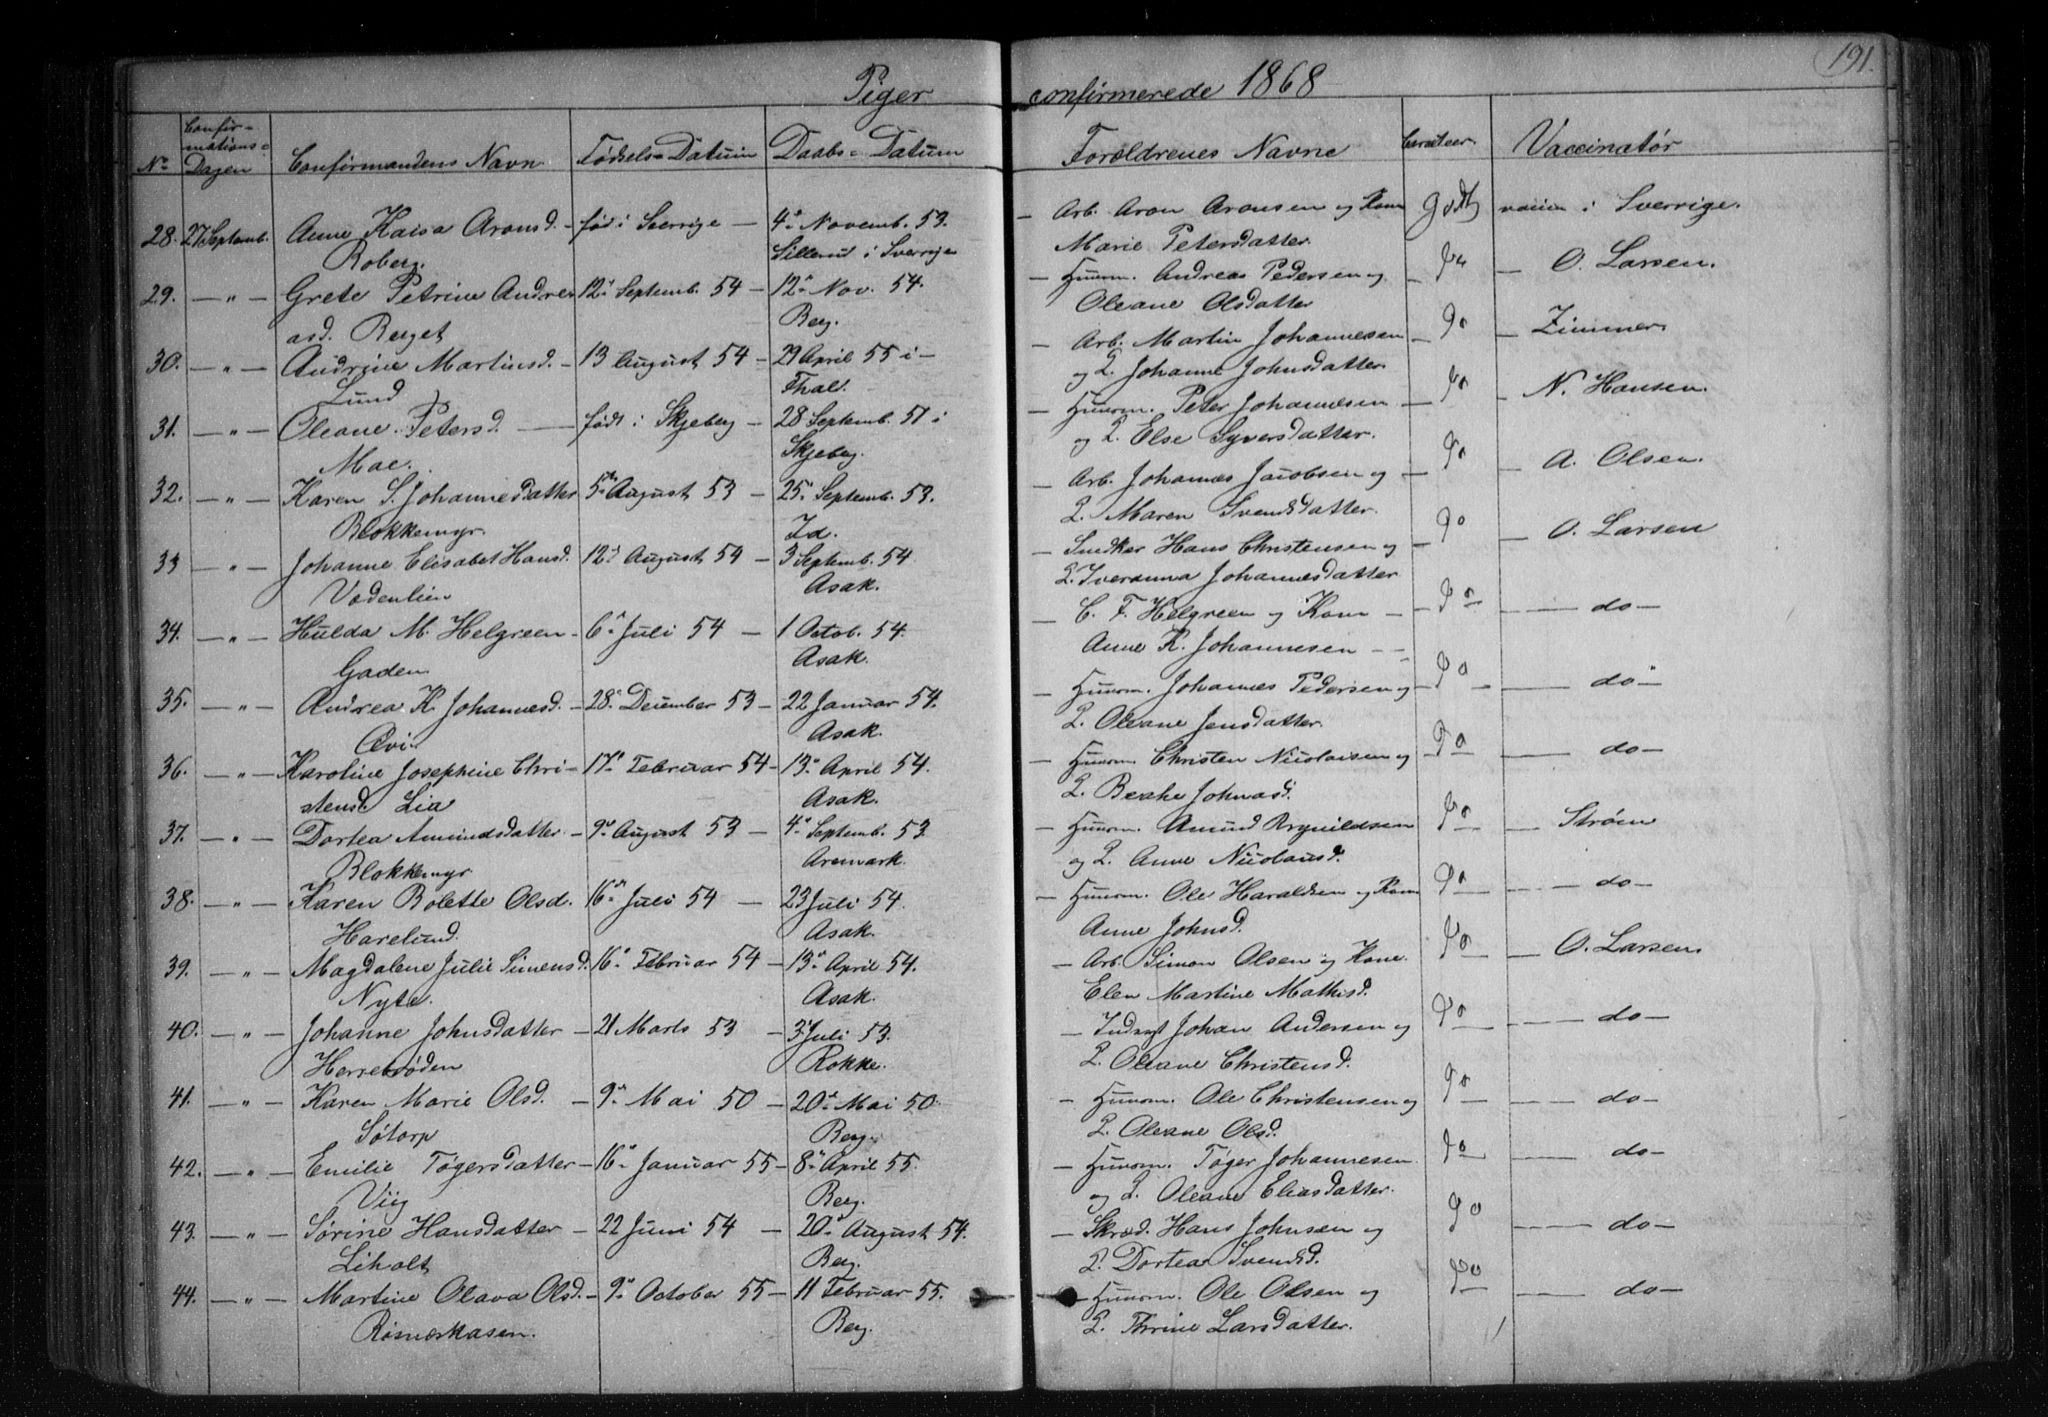 191.
Piger confirmerede 1868
No Confirmations-Dagen Confirmandens Navn Fødsels-Datum Daabs-Datum Forældrenes Navne Caracteer. Vaccinatør
28. 27 Septemb. Anne Kaisa Aronsd. – fød i Sverrige – 4de Novemb. 53. – Arb. Aron Aronsen og Kone Godt vaccin i Sverrige.
Roberg. Sillerud i Sverrige Marie Petersdatter.
29. – " – Grete Petrine Andre- 12te Septemb. 54 – 12te Nov. 54. – Huusm. Andreas Pedersen og – do – O. Larsen.
asd. Berget Berg. Oleane Olsdatter
30. – " – Andrine Martinsd. – 13 August 54 – 29 April 55 i – – Arb. Martin Johannesen – do – Zimmer
Lund Thal. og Q. Johanne Johnsdatter.
31. – " – Oleane Petersd. – født i Skjeberg – 28 Septemb. 51 i – Huusm. Peter Johannesen – do – N. Hansen.
Moe. Skjeberg. og Q. Else Syversdatter.
32. – " – Karen S. Johannesdatter 5te August 53 – 25 Septemb. 53. – Arb. Johannes Jacobsen og – do – A. Olsen.
Blokkemyr. Id. Q. Maren Svendsdatter.
33 – " – Johanne Elisabet Hansd. 12te August 54 – 3 Septemb. 54 – Snedker Hans Christensen og – do – O. Larsen
Vadenlien Asak. Q. Iveranna Johannesdatter
34. – " – Hulda M. Helgreen – 6te Juli 54 – 1 Octob. 54. – C. F. Helgreen og Kone – – do – – do –
Gaden Asak. Anne K. Johannesen – –
35. – " – Andrea K. Johannesd. – 28. December 53 – 22 Januar 54. – Huusm. Johannes Pedersen og – do – – do –
Asak. Q. Oleane Jensdatter.
36. – " – Karoline Josephine Chri- 17de Februar 54 – 13de April 54. – Huusm Christen Nicolaisen og – do – do –
stensd. Lia Asak. Q. Berthe Johnasd.
37. – " – Dortea Amundsdatter – 9de August 53 – 4de Septemb. 53 – Huusm. Amund Brynildsen do – Strøm
Blokkemyr Aremark. og Q. Anne Nicolaisd.
38. – " – Karen Bolette Olsd. 16de Juli 54 – 23 Juli 54. – Huusm. Ole Haraldsen og Kone do – – do –
Harelund. Asak. Anne Johnsd.
39. – " – Magdalene Julie Simensd. 16de Februar 54 – 13de April 54. – Arb. Simon Olsen og Kone. do – O. Larsen
Nytø. Asak. Elen Martine Mathisd.
40. – " – Johanne Johnsdatter – 21 Marts 53 – 3 Juli 53. – Indsgt Johan Andersen og do – – do –
Herrebrøden Rokke. Q. Oleane Christensd.
41. – " – Karen Marie Olsd. – 9de Mai 50 – 20de Mai 50. – Huusm. Ole Christensen og do – – do –
Søtorp Berg. Q. Oleane Olsd.
42. – " – Emilie Tøgersdatter – 16de Januar 55 – 8de April 55. – Huusm. Tøger Johannesen do – – do –
Viig Berg. og Q. Oleane Eliasdatter.
43. – " – Sørine Hansdatter – 22 Juni 54 – 20de August 54. – Skræd. Hans Johnsen og do – do –
Liholt Berg. Q. Dortea Svendsd.
44. – " – Martine Olava Olsd. – 9de October 55 – 11 Februar 55. – Huusm. Ole Olsen og do – – do –
Rismerkasen. Berg. Q. Thrine Larsdatter.